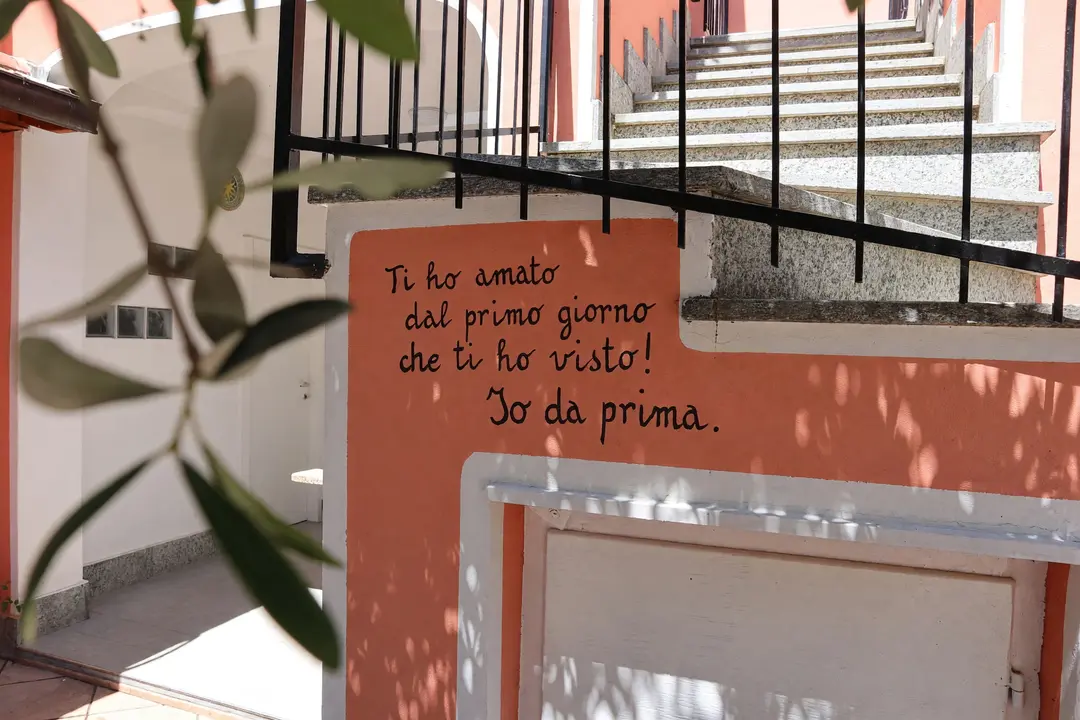 Ti ho amato
dal primo giorno
che ti ho visto!
Io da prima.